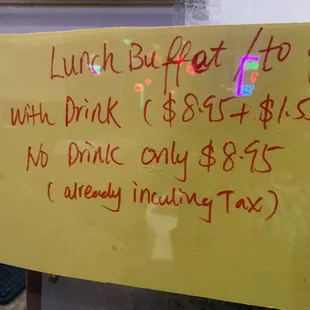 Lunch Buffet / to
with Drink ( $8.95 + $1.5
No Drink only $8.95
( already inculing Tax )